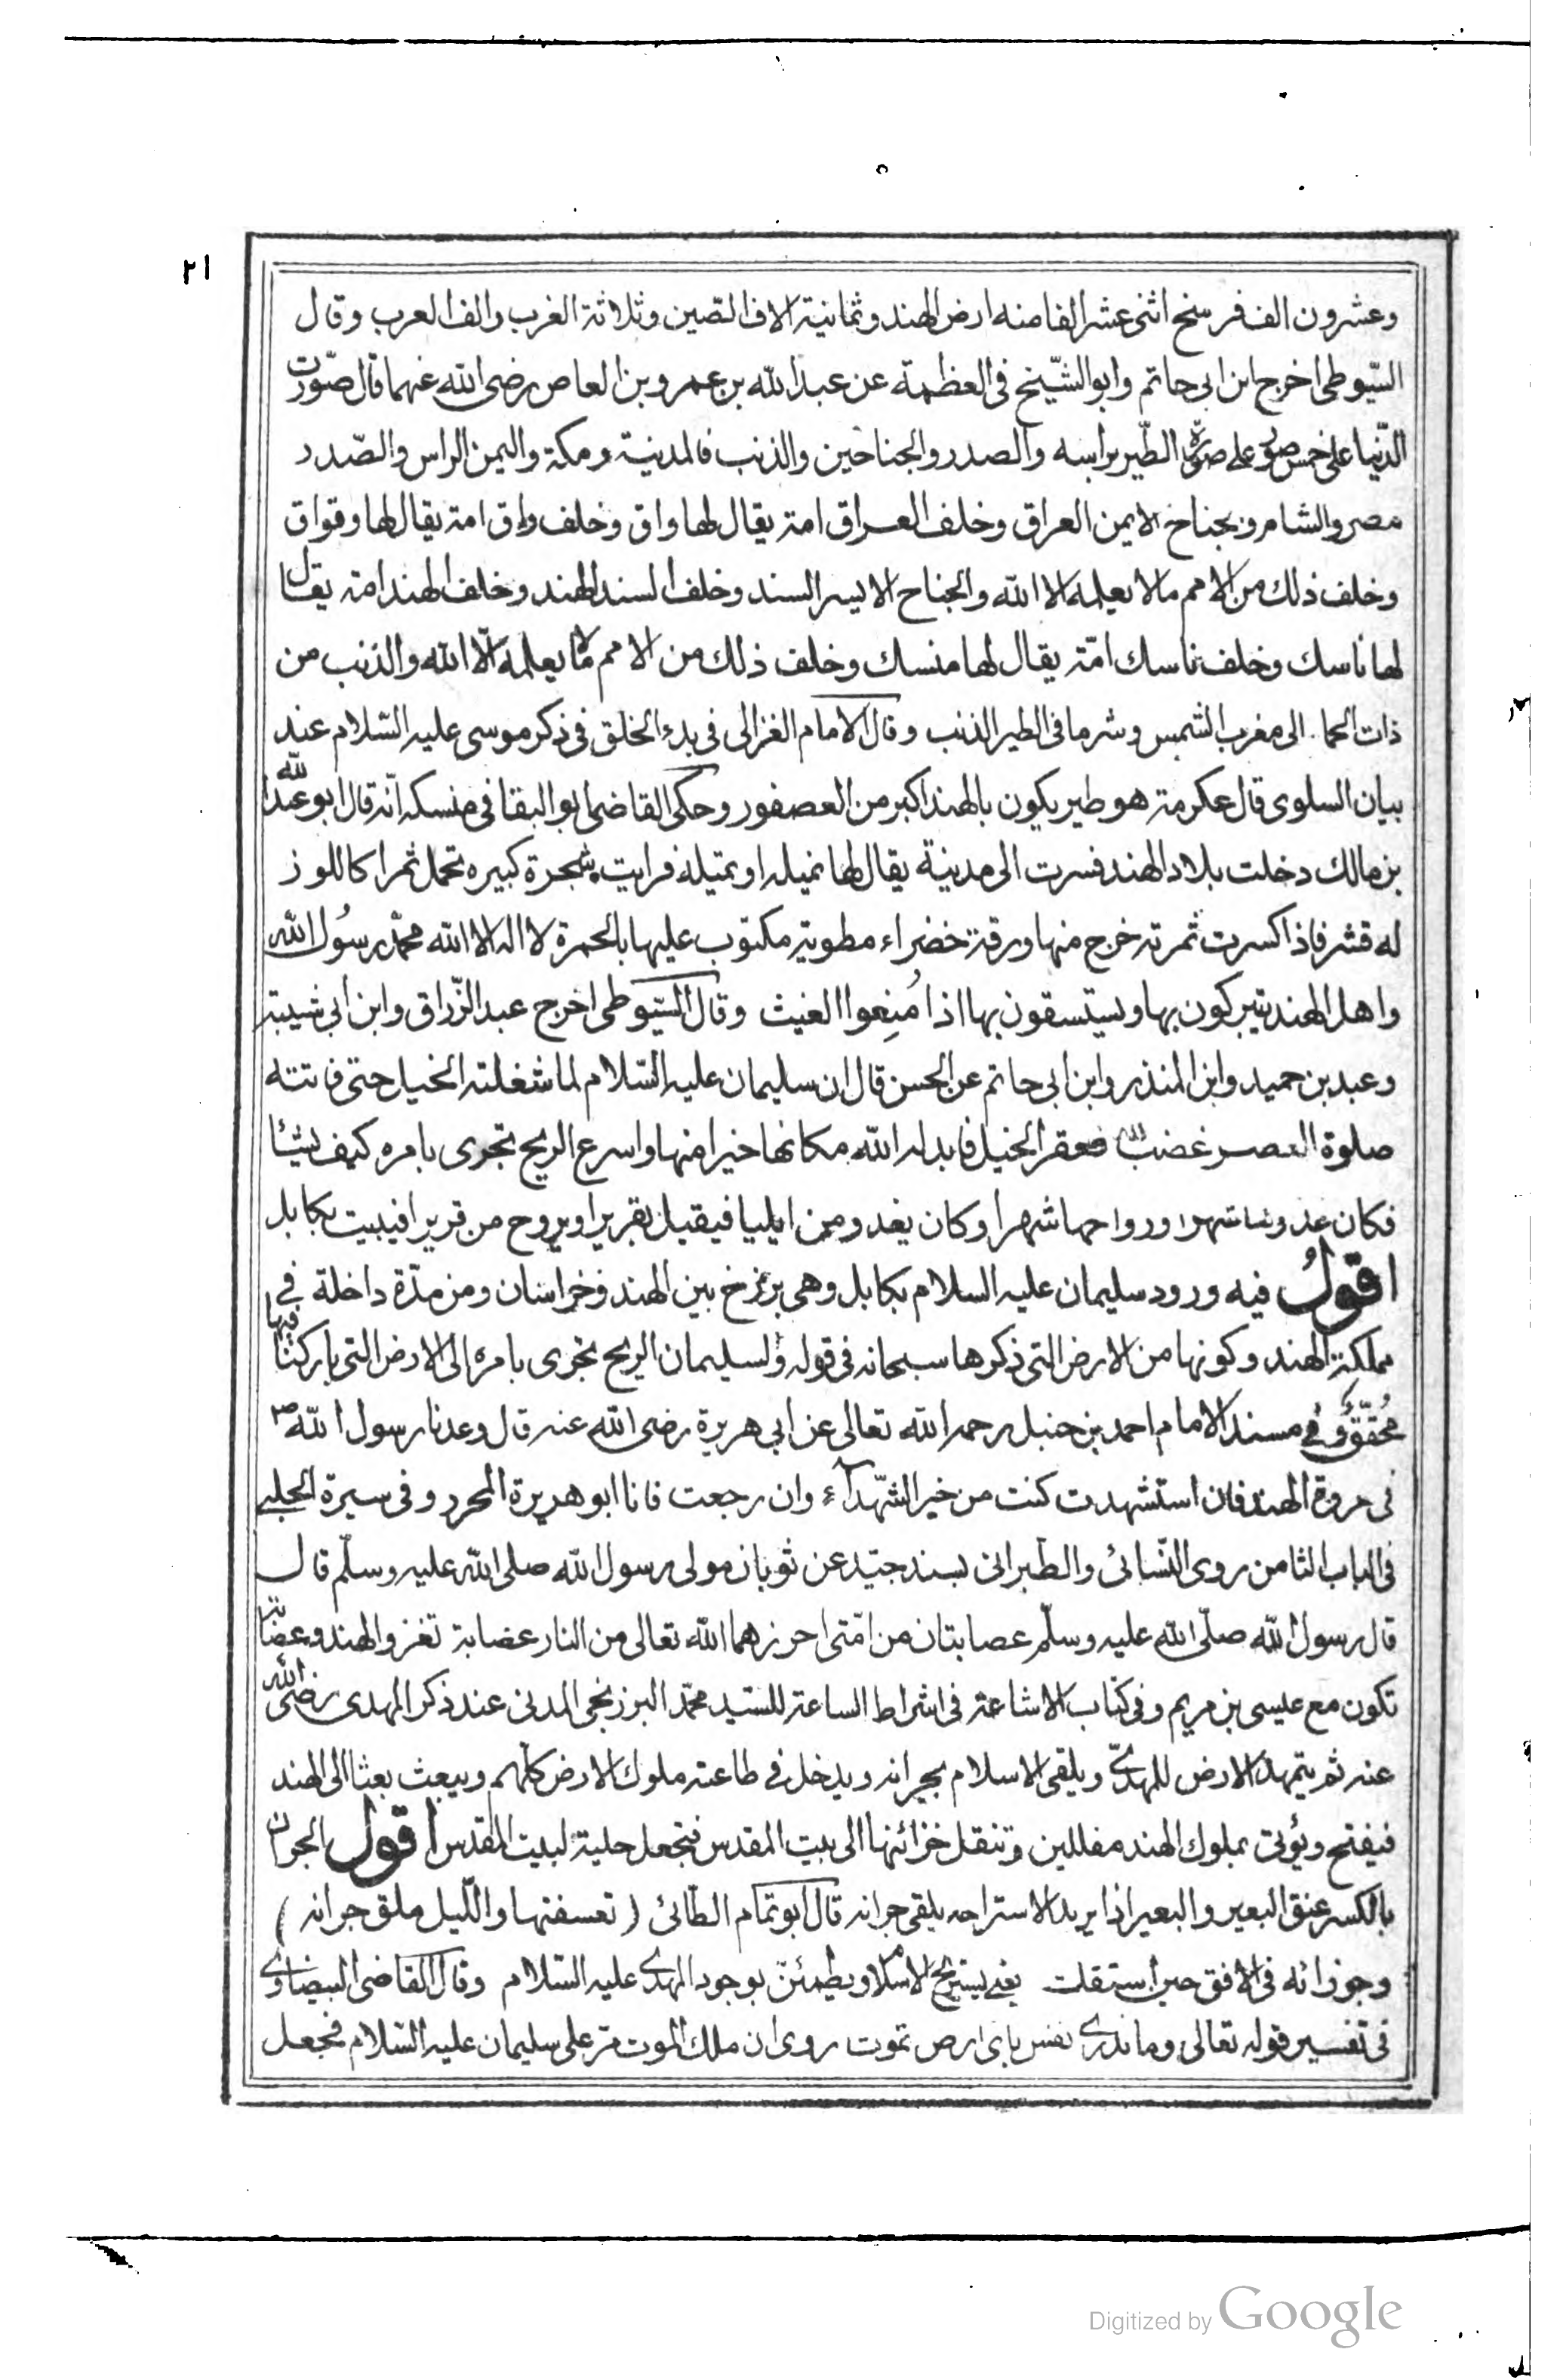 ٢١
وعشرون الف فرسخ اثنى عشر الفا منه ارض الهند وثمانية الاف الصين وثلاثة الغرب والف العرب وقال
السّيوطى اخرج ابن ابى حاتم وابو الشّيخ فى العظمة عن عبد الله بن عمرو بن العاص رضى الله عنهما قال صّورت
الدّنيا على خمس صور على صورة الطّير براسه والصدر والجناحين والذنب فالمدنية ومكة واليمن الراس والصّدر
مصر والشام وبجناح الايمن العراق وخلف العراق امة يقال لها واق وخلف واق امة يقال لها وقواق
وخلف ذلك من الامم مالا يعلمه الا الله والجناح الايسر السند وخلف السند الهند وخلف الهند امة يقال
لها ناسك وخلف ناسك امّة يقال لها منسك وخلف ذلك من الامم مالا يعلمه الّا الله والذنب من
ذات الحما الى مغرب الشمس وشر ما فى الطير الذنب وقال الامام الغزالى فى بدء الخلق فى ذكر موسى عليه السّلام عند
بيان السلوى قال عكرمة هو طير يكون بالهند اكبر من العصفور وحكى القاضى ابو البقا فى منسكه انّه قال ابو عبد الله
بن مالك دخلت بلاد الهند فسرت الى مدينة يقال لها نميله او تميلة فرايت شجرة كبيره تحمل ثمرا كاللوز
له قشر فاذا كسرت ثمرته خرج منها ورقة خضراء مطوية مكتوب عليها بالحمرة لا اله الا الله محمّد رسُول الله
واهل الهند يتبركون بها ويستسقون بها اذا مُنِعوا الغيث وقال السّيوطى اخرج عبد الرّزاق وابن ابى شيبة
وعبد بن حميد وابن المنذر وابن ابى حاتم عن الحسن قال ان سليمان عليه السّلام لما شغلته الخيل حتى فاتته
صلوة العصر غضب لله فعقر الخيل فابدله الله مكانها خيرا منها واسرع الريح تجرى بامره كيف يشا
فكان غدوها شهرا ورواحها شهرا وكان يغدو من ايليا فيقيل بقريرا ويروح من قريرا فيبيت بكابل
اقولُ فيه ورود سليمان عليه السلام بكابل وهى برزخ بين الهند وخراسان ومن مدّة داخلة فى
مملكة الهند وكونها من الارض التى ذكرها سبحانه فى قوله ولسليمان الريح تجرى بامره الى الارض التى باركنا فيها
مُحَقّق وفى مسند الامام احمد بن حنبل رحمه الله تعالى عن ابى هريرة رضى الله عنه قال وعدنا رسول الله ص
فى غزوة الهند فان استشهدت كنت من خير الشّهدآء وان رجعت فانا ابو هريرة المحرر وفى سيرة الحلبى
فى الباب الثامن روى النّسائى والطّبرانى بسند جيّد عن ثوبان مولى رسول الله صلى الله عليه وسلّم قال
قال رسول الله صلّى الله عليه وسلّم عصابتان من امّتى احرزهما الله تعالى من النار عصابة تغزو الهند وعصابة
تكون مع عيسى بن مريم وفى كتاب الاشاعة فى اشراط الساعة للسّيد محمّد البرزنجى المدنى عند ذكر المهدى رضى الله
عنه ثم يتمهد الارض للمهدىّ ويلقى الاسلام بجرانه ويدخل فى طاعته ملوك الارض كلّهم ويبعث بعثا الى الهند
فيفتح ويؤتى بملوك الهند مغللين وتنقل خزائنها الى بيت المقدس فتجعل حلية لبيت المقدس اقول الجران
بالكسر عنق البعير والبعير اذا يريد الاستراحه يلقى جرانه قال ابو تمّام الطّائى ( تعسفتها واللّيل ملق جرانه )
وجوزائه فى الافق حين استقلت يعنى يستريح الاسلام ويطمئنّ بوجود المهدى عليه السّلام وقال القاضى البيضاوى
فى تفسير قوله تعالى وما تدرى نفس باى ارض تموت روى ان ملك الموت مرّ على سليمان عليه السّلام فجعل
Digitized by Google